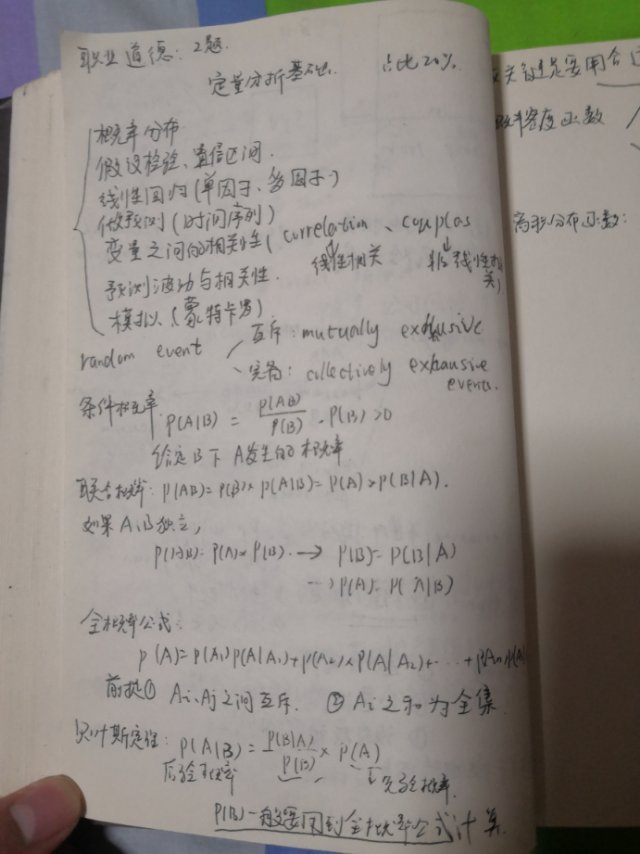 职业道德：2题.
定量分析基础. 占比20%.
概率分布
假设检验、置信区间.
线性回归(单因子、多因子)
做预测(时间序列)
变量之间的相关性( correlation 、 couplas
线性相关 非线性相关)
预测波动与相关性.
模拟.(蒙特卡罗)
random event 互斥: mutually exclusive
完备: collectively exhausive events.
条件概率: P(A|B) = P(AB)/P(B) . P(B)>0
给定B下A发生的概率.
联合概率: P(AB)= P(B)× P(A|B)= P(A)×P(B|A).
如果A、B独立,
P(AB)= P(A)× P(B). → P(B)= P(B|A)
→ P(A)= P(A|B)
全概率公式.
P(A)= P(A₁)P(A|A₁)+P(A₂)×P(A|A₂)+…+P(An)P(A|
前提① Ai、Aj之间互斥. ② Ai之和为全集.
贝叶斯定理: P(A|B) = P(B|A)/P(B) × P(A)
后验概率 先验概率.
P(B)一般要用到全概率公式计算.
关
用合
概率密度函数
离散分布函数: